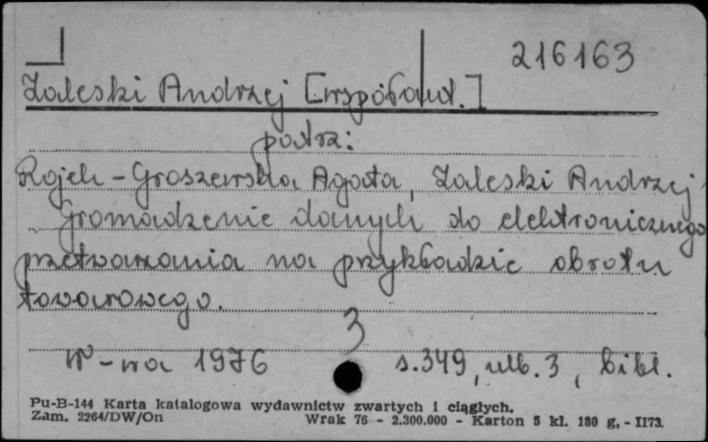 216163
Zaleski Andrzej [współaut.]
patrz:
Rojek-Groszewska Agata, Zaleski Andrzej
Gromadzenie danych do elektronicznego
przetwarzania na przykładzie obrotu
towarowego.
3
W-wa 1976 s.349, nlb. 3, bibl.
Pu-B-144 Karta katalogowa wydawnictw zwartych i ciągłych.
Zam. 2264/DW/On Wrak 76 - 2.300.000 - Karton 5 kl. 180 g, - II73.